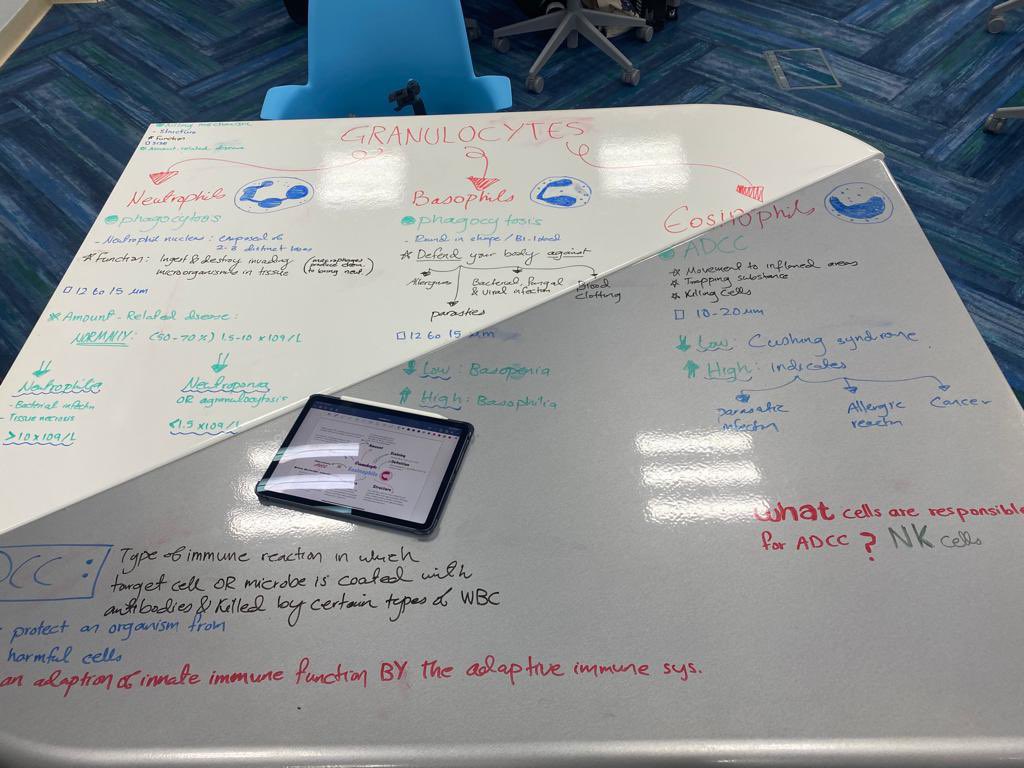 - Structure
* Function
□ size
Amount-related disease
GRANULOCYTES
Neutrophils
phagocytosis
- Neutrophil nucleus : composed of
2-3 distinct lobes
* Function: Ingest & destroy invading
microorganisms in tissue
(macrophages
□ 12 to 15 µm
* Amount-Related disease:
NORMANLY: (50-70%) 1.5-10 x109/L
Neutrophilia
- Bacterial infectn
Tissue necrosis
>10x109/L
Neutropenia
OR agranulocytosis
<1.5x109/L
Basophils
phagocytosis
- Round in shape / Bi-lobed
* Defend your body against
Allergens
Bacterial, fungal
& viral infection
Blood
clotting
parasites
□ 12 to 15 µm
↓ Low : Basopenia
↑ High : Basophilia
Eosinophils
ADCC
* Movement to inflamed areas
* Trapping substance
* Killing Cells
□ 10-20 um
↓ Low: Cushing syndrome
↑ High: Indicates
parasatic
infectn
Allergic
reactn
Cancer
What cells are responsible
for ADCC ? NK cells
DCC :
Type of immune reaction in which
target cell OR microbe is coated with
antibodies & killed by certain types of WBC
protect an organism from
harmful cells
an adaption of innate immune function BY the adaptive immune sys.
Eosinophils
Structure